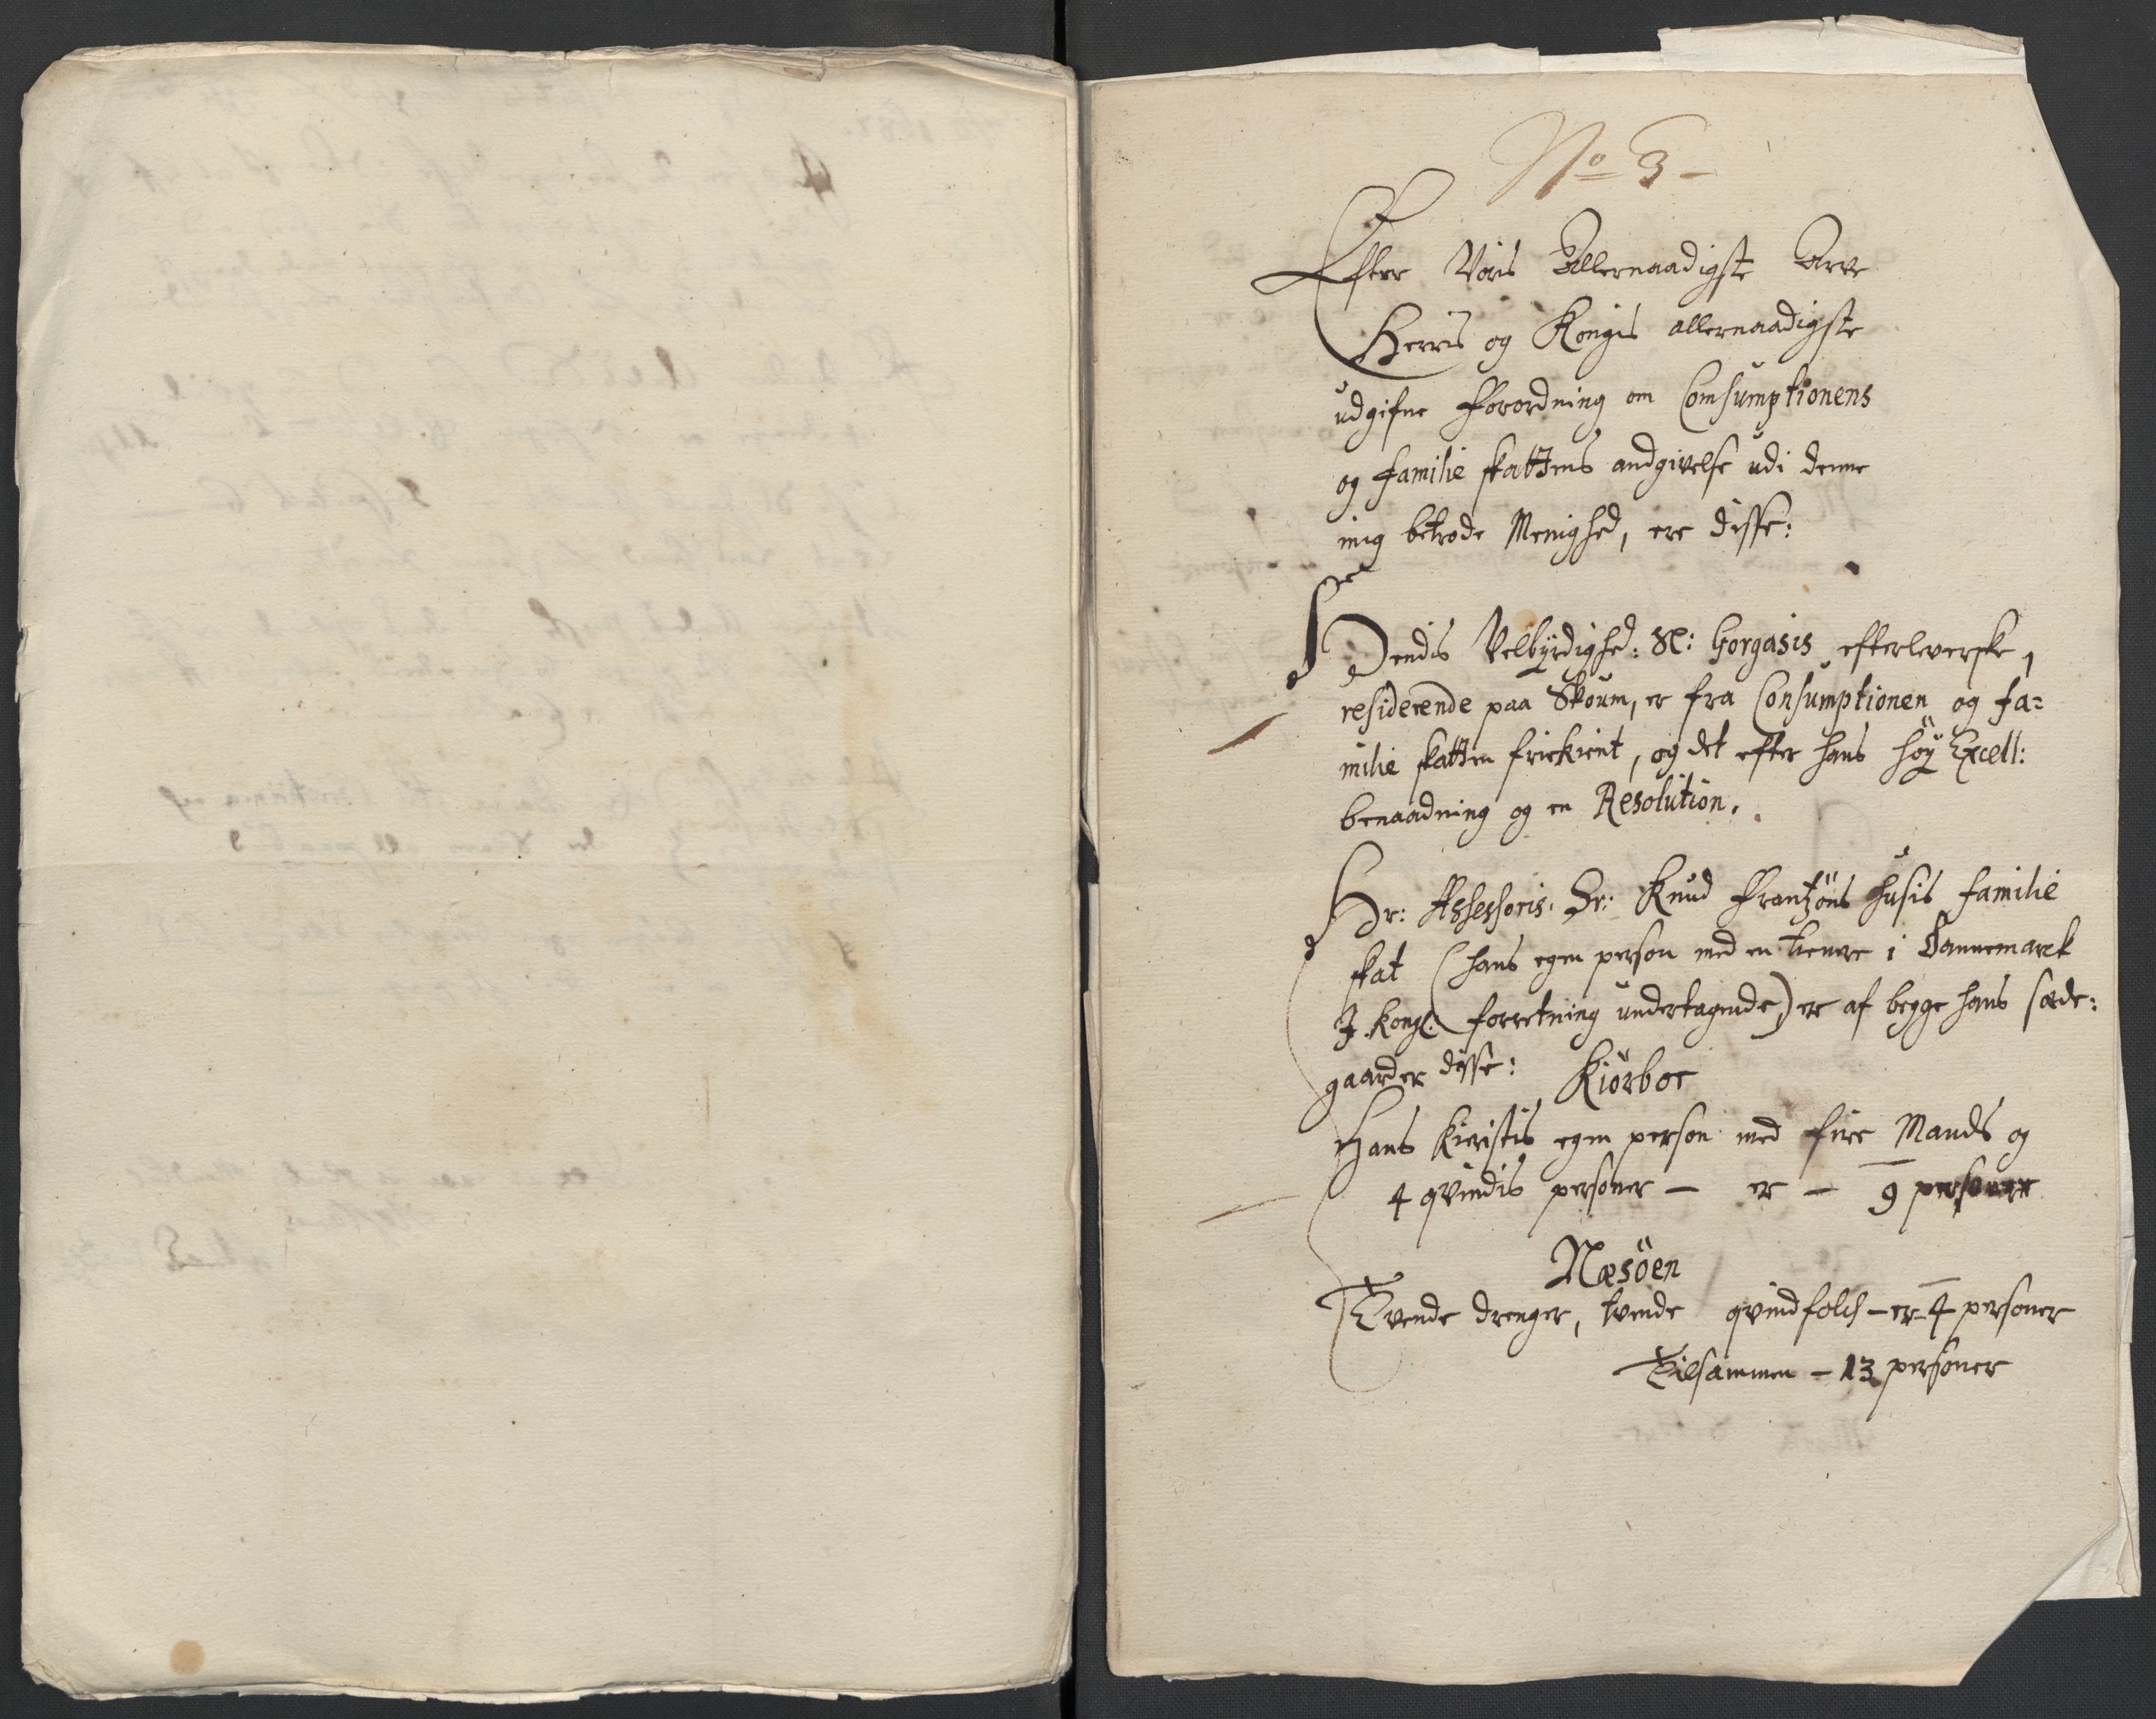 No 3 -
Efter Voris Allernaadigste Arve
Herris og Kongis allernaadigste
udgifne Forordning om Comsumptionens
og familie skattens andgivelse udi denne
mig betrode Menighed, ere disse:
Hendis Velbyrdighed: Sl: Gorgasis efterleverske,
residerende paa Skoum, er fra Consumptionen og fa=
milie skatten friekient, og det efter hans höy Excell:
benaadning og en Resolution.
Hr: Assessoris. Hr: Knud Frantzöns husis familie
skat (hans egen person med en tienere i Dannemarck
J. Kongl: forretning undertagende) er af begge hans sæde:
gaarder disse: Kiörboe
Hans Kieristis egen person med fire Mands og
4 qvindis personer - er - 9 personer
Næsöen
Tvende drenger, tvende qvindfolch - er - 4 personer
Tilsammen - 13 personer